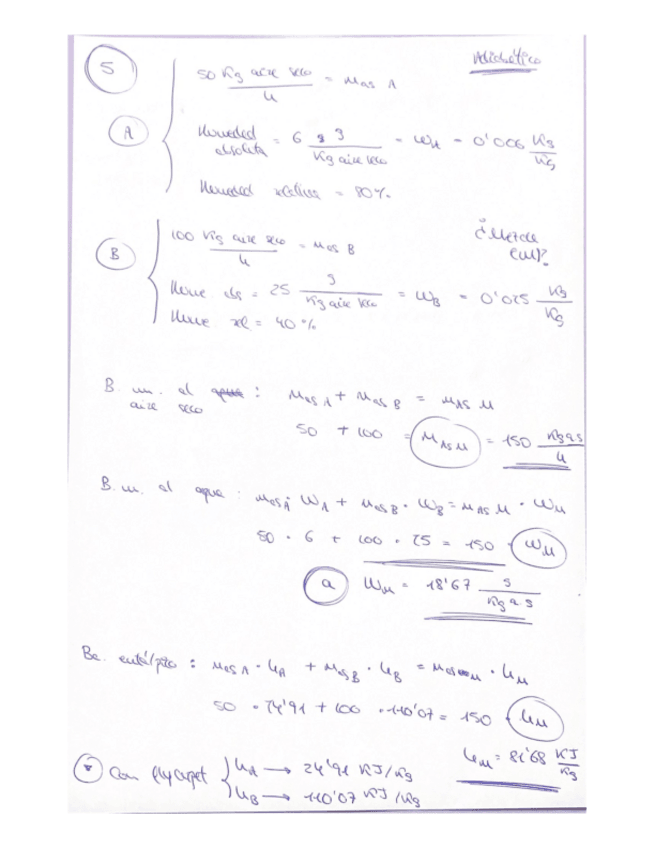 5
Adiabático
A
50 Kg aire seco / h = mas A
Humedad absoluta = 6 g / Kg aire seco = WA = 0'006 Kg / Kg
Humedad relativa = 80%
B
100 Kg aire seco / h = mas B
¿Mezcla
Hume abs = 25 g / Kg aire seco = WB = 0'025 Kg / Kg
Hume rel = 40%
B. m. al aire seco : mas A + mas B = mAS M
50 + 100 = mAS M = 150 Kg a.s / h
B. m. al agua : mas A · WA + mas B · WB = mAS M · WM
50 · 6 + 100 · 25 = 150 · WM
a WM = 18'67 g / Kg a.s
Ba. entálpico : mas A · hA + mas B · hB = mas M · hM
50 · 24'91 + 100 · 110'07 = 150 · hM
hM = 81'68 KJ / Kg
* Con hA → 24'91 KJ/Kg
hB → 110'07 KJ/Kg